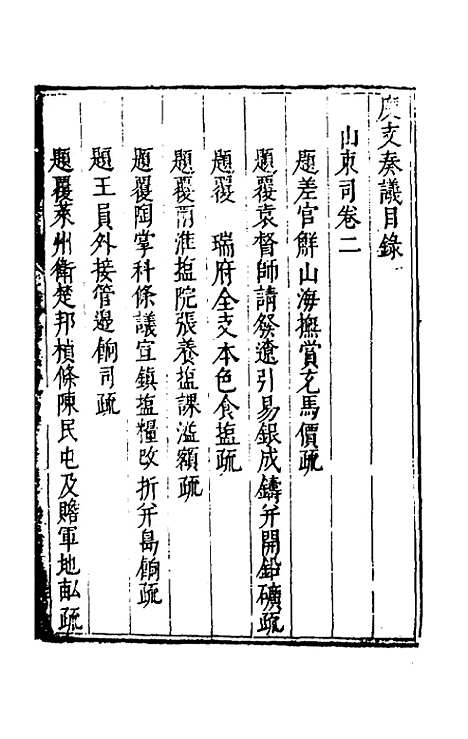 度支奏議目錄
山東司卷二
題差官觧山海撫賞充馬價疏
題覆袁督師請發遼引易銀成鑄并開鉛礦疏
題覆 瑞府全支本色食塩疏
題覆兩淮塩院張養塩課溢額疏
題覆陶掌科條議宣鎮塩糧改折并島餉疏
題王員外接管邊餉司疏
題覆萊州衛楚邦楨條陳民屯及贍軍地畝疏